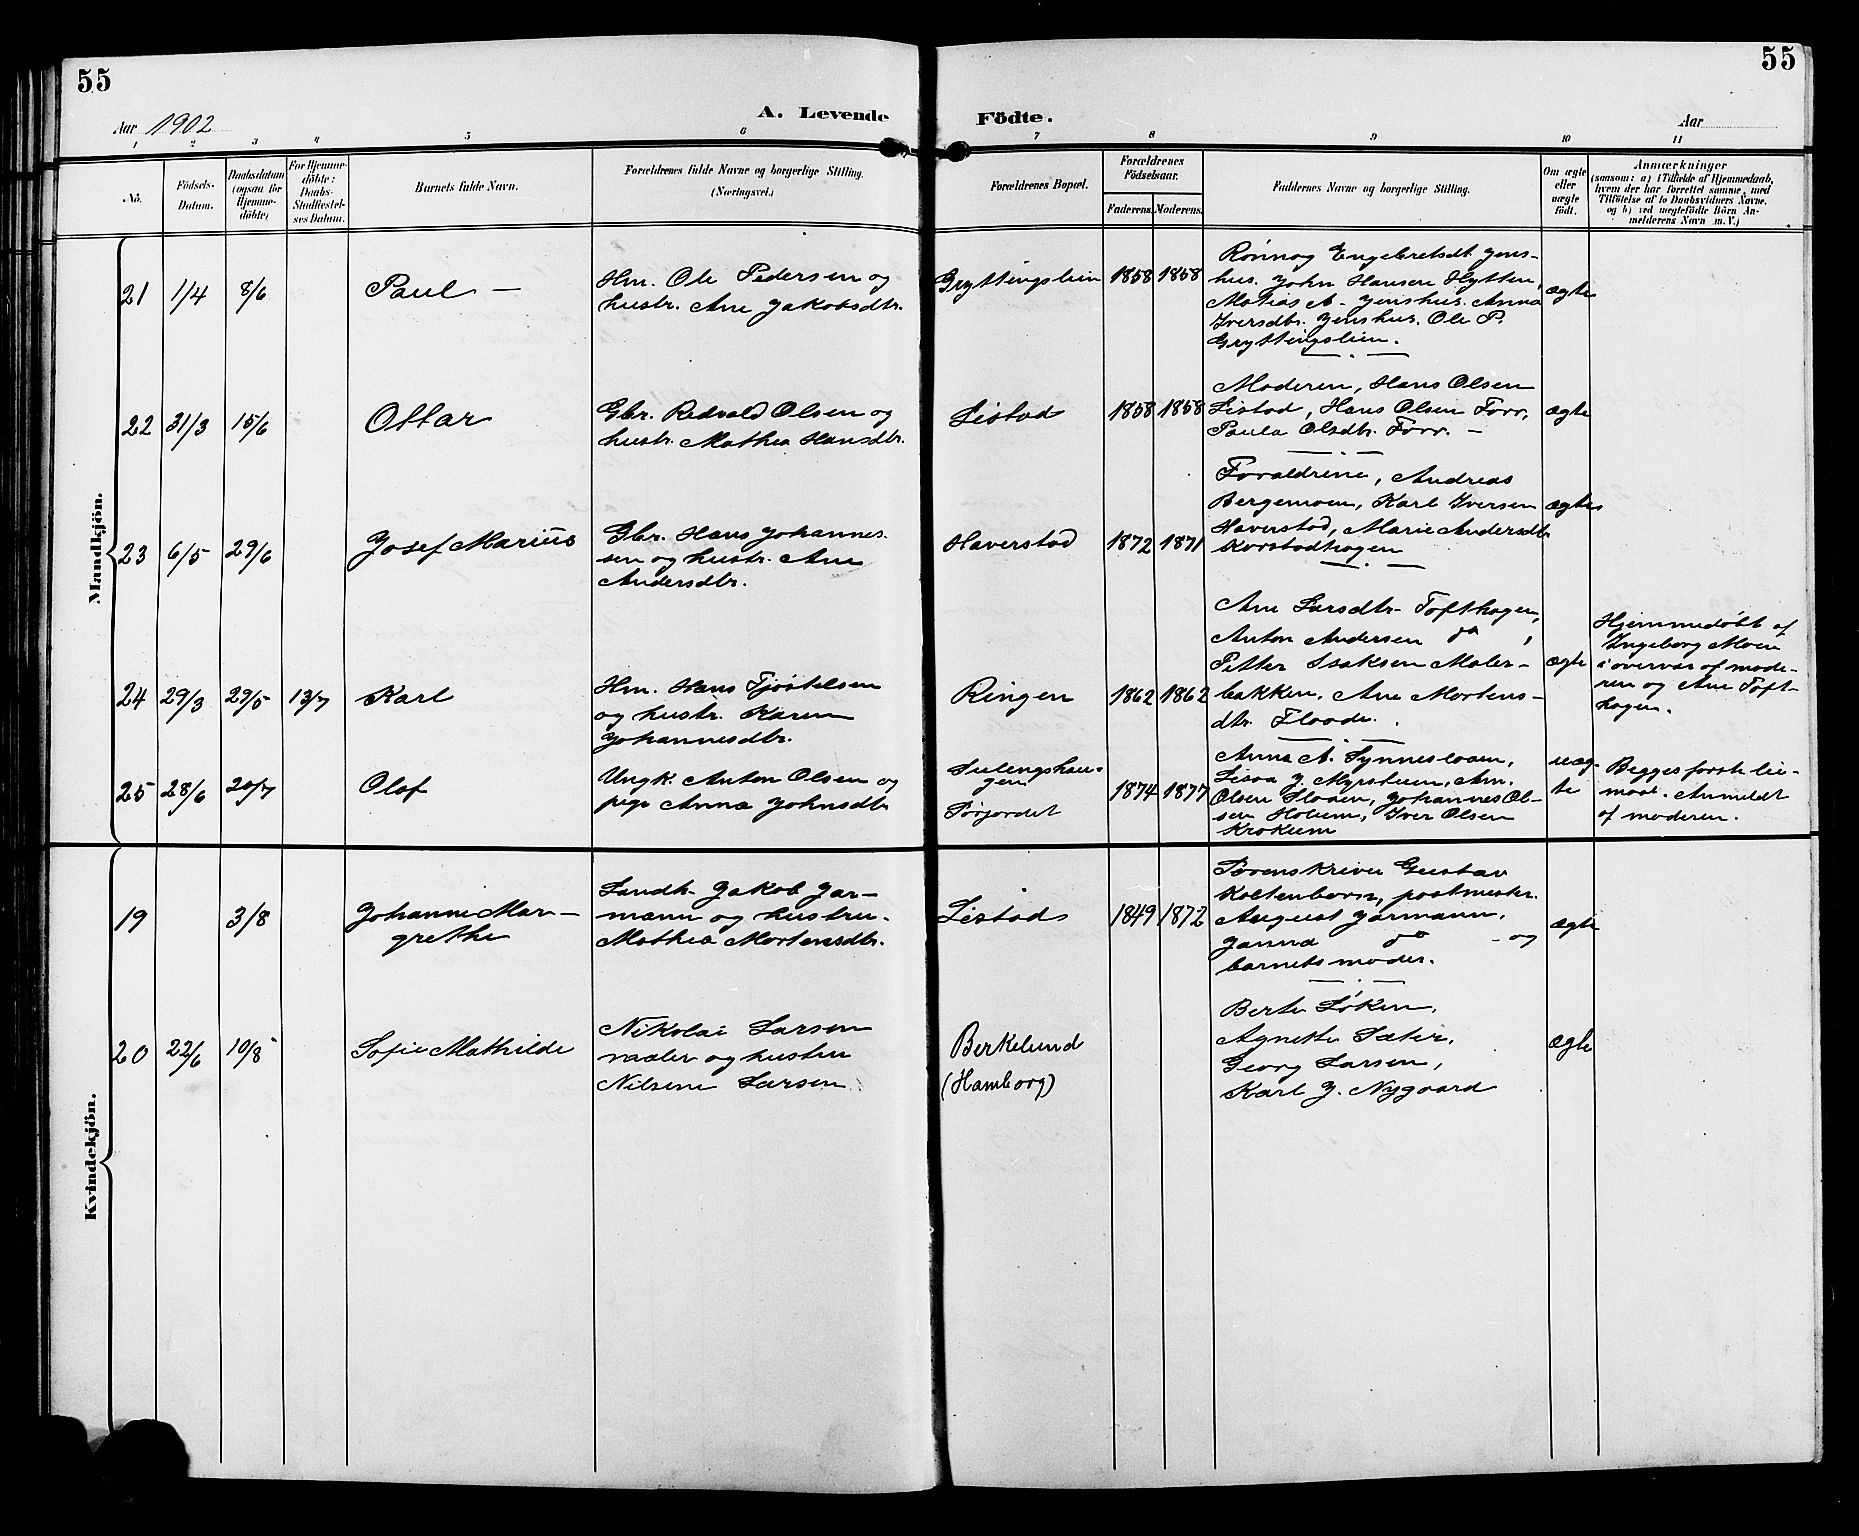 55
55
Aar 1902
A. Levende
Födte.
Aar
1 2 3 4 5 6 7 8 9 10 11
No.
Födsels-
Datum.
Daabsdatum
(ogsaa for
Hjemme-
döbte)
For Hjemme-
döbte:
Daabs-
Stadfæstel-
ses Datum.
Barnets fulde Navn.
Forældrenes fulde Navne og borgerlige Stilling.
(Næringsvei.)
Forældrenes Bopæl.
Forældrenes
Födselsaar.
Faderens. Moderens.
Faddernes Navne og borgerlige Stilling.
Om ægte
eller
uægte
födt.
Anmærkninger
(saasom: a) i Tilfælde af Hjemmedaab,
hvem der har forrettet samme, med
Tilföielse af to Daabsvidners Navne,
og b) ved uægtefödte Börn An-
melderens Navn m. V.)
Mandkjön.
21 1/4 8/6
Paul —
Hm. Ole Pedersen og
hustr. Ane Jakobsdtr.
Gryttingslien
1858 1858
Rönnog Engebretsdt Jens-
hus. John Hansen Hytten,
Matias A- Jenshus. Anna
Iversdtr. Jenshus. Ole P.
Gryttingslien.
ægte
22 31/3 15/6
Ottar
Gbr. Redvald Olsen og
hustr. Mathea Hansdtr.
Listad
1858 1858
Moderen, Hans Olsen
Listad, Hans Olsen Forr,
Paula Olsdtr. Forr. —
ægte
23 6/5 29/6
Josef Marius
Gbr. Hans Johannes-
sen og hustr. Ane
Andersdtr.
Haverstad
1872 1871
Forældrene, Andreas
Bergemoen, Karl Iversen
Haverstad, Marie Andersdtr
Korstadhagen
ægte
24 29/3 29/5 13/7
Karl
Hm. Hans Fjöstelsen
og hustr. Karen
Johannesdtr.
Ringen
1862 1862
Ane Larsdtr- Tofthagen,
Anton Andersen do,
Petter Isaksen Maler-
bakken, Ane Mortens-
dtr. Flaade.
ægte
Hjemmedøbt af
Ingeborg Moen
i overvær af mode-
ren og Ane Toft-
hagen.
25 28/6 20/7
Olaf
Ungk. Anton Olsen og
pige Anna Johnsdtr
Sulengshau-
gen
Sörjordet
1874 1877
Anna A. Synneslaaen,
Lisva J Myrstuen, Am.
Olsen Slaaen, Johannes Ol-
sen Holum, Iver Olsen
Krokum
uæg-
te
Begges første lei-
maal. Anmeldt
af moderen.
Kvindekjön.
19 3/8
Johanne Mar-
grethe
Landh. Jakob Jar-
mann og hustru
Mathea Mortensdtr.
Listad
1849 1872
Sorenskriver Gustav
Koltenborn, postmester
August Jarmann,
Janna do — og
barnets moder.
ægte
20 22/6 10/8
Sofie Mathilde
Nikolai Larsen
maler og hustru
Nilsine Larsen
Berkelund
(Hamborg)
Berte Löken,
Agnette Sæter,
Georg Larsen,
Karl J. Nygaard
ægte